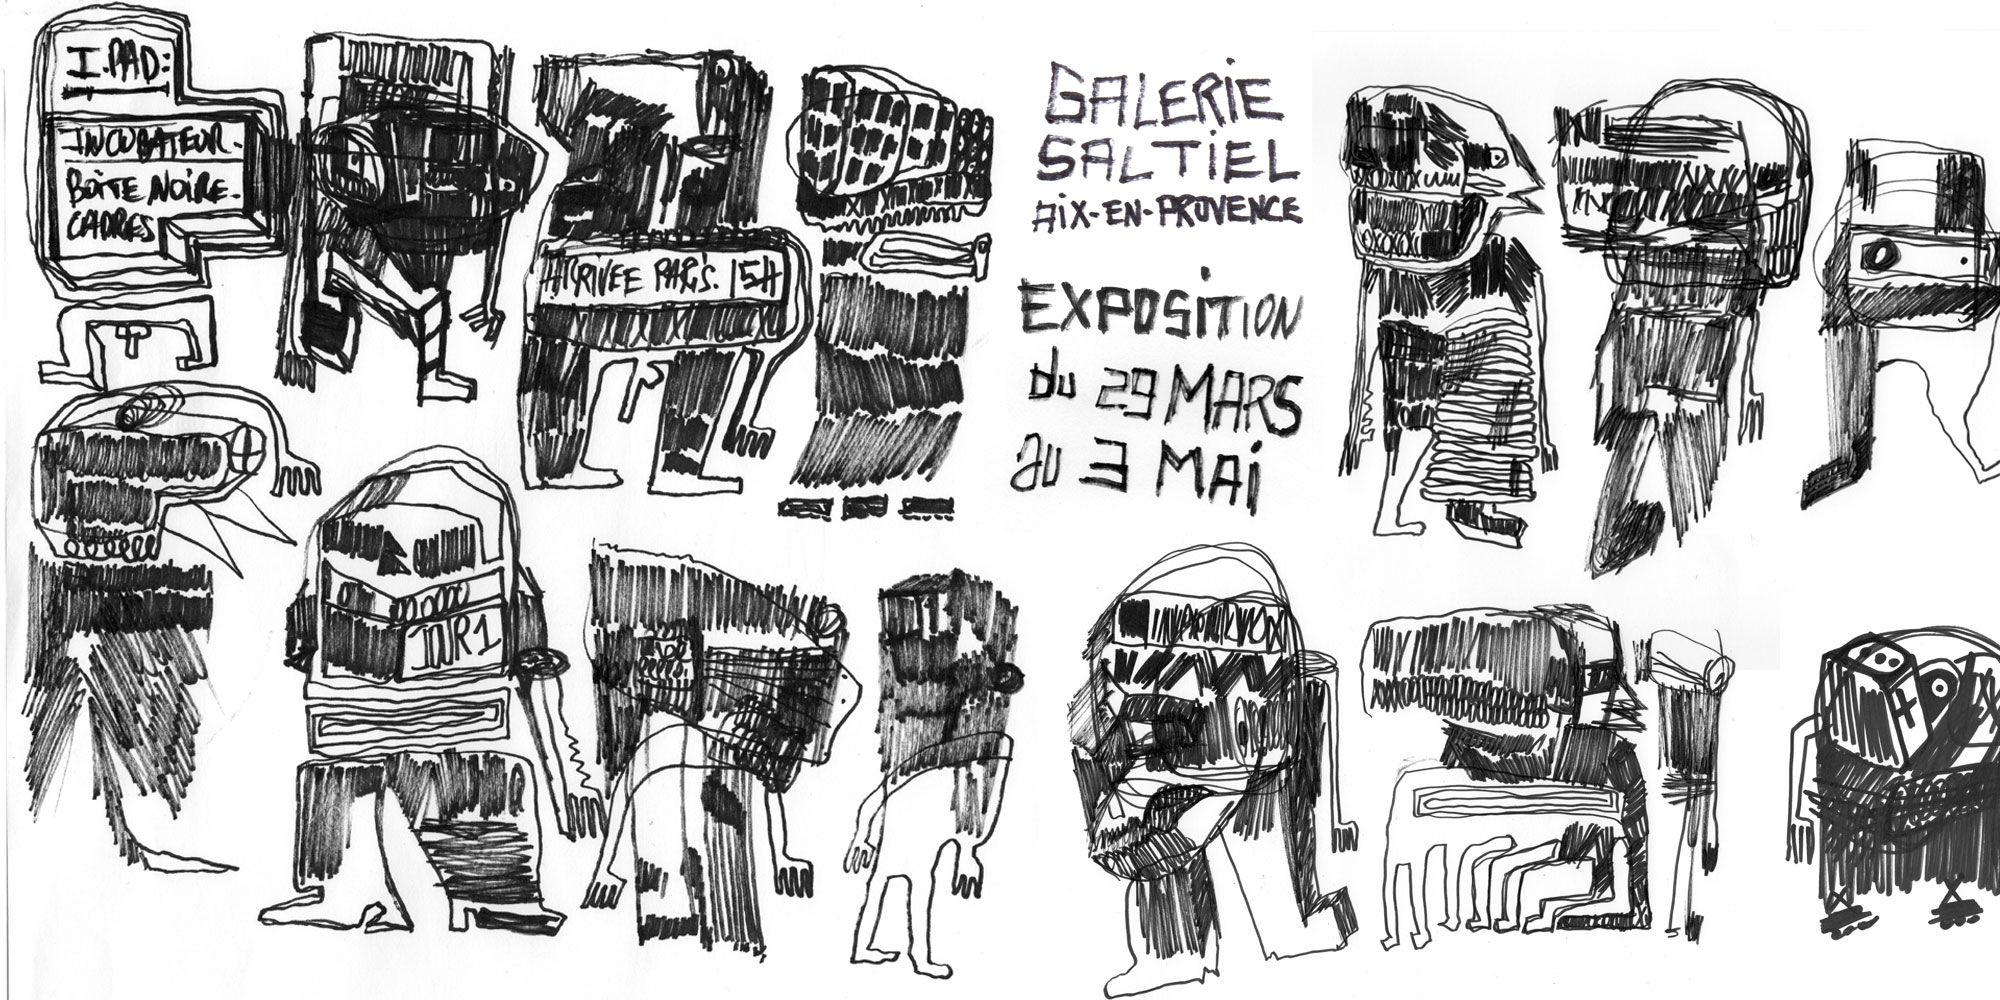 I.PAD:
INCUBATEUR.
BOITE NOIRE.
CADRES
ARRIVEE PARIS. 15H
GALERIE
SALTIEL
AIX-EN-PROVENCE
EXPOSITION
du 29 MARS
au 3 MAI
JOUR1